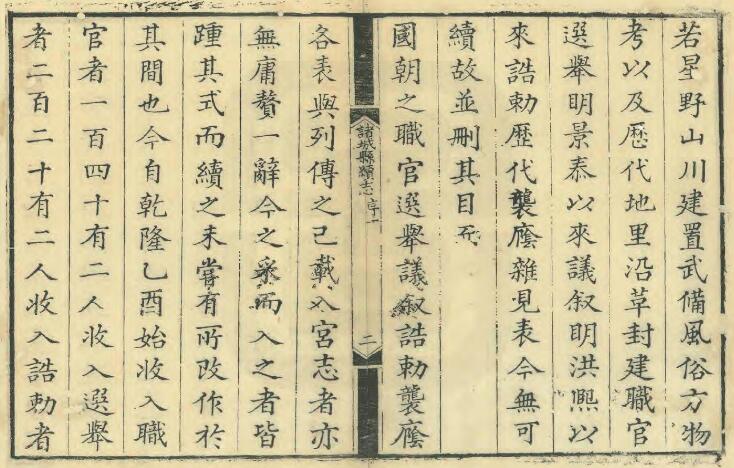 若星野山川建置武備風俗方物
考以及歷代地里沿革封建職官
選舉明景泰以來議叙明洪熙以
來誥勅歷代襲廕雜見表今無可
續故並刪其目不
國朝之職官選舉議叙誥勅襲廕
諸城縣續志 序一
二
各表與列傳之已載入宮志者亦
無庸贅一辭今之采而入之者皆
踵其式而續之未嘗有所改作於
其間也今自乾隆乙酉始收入職
官者一百四十有二人收入選舉
者二百二十有二人收入誥勅者